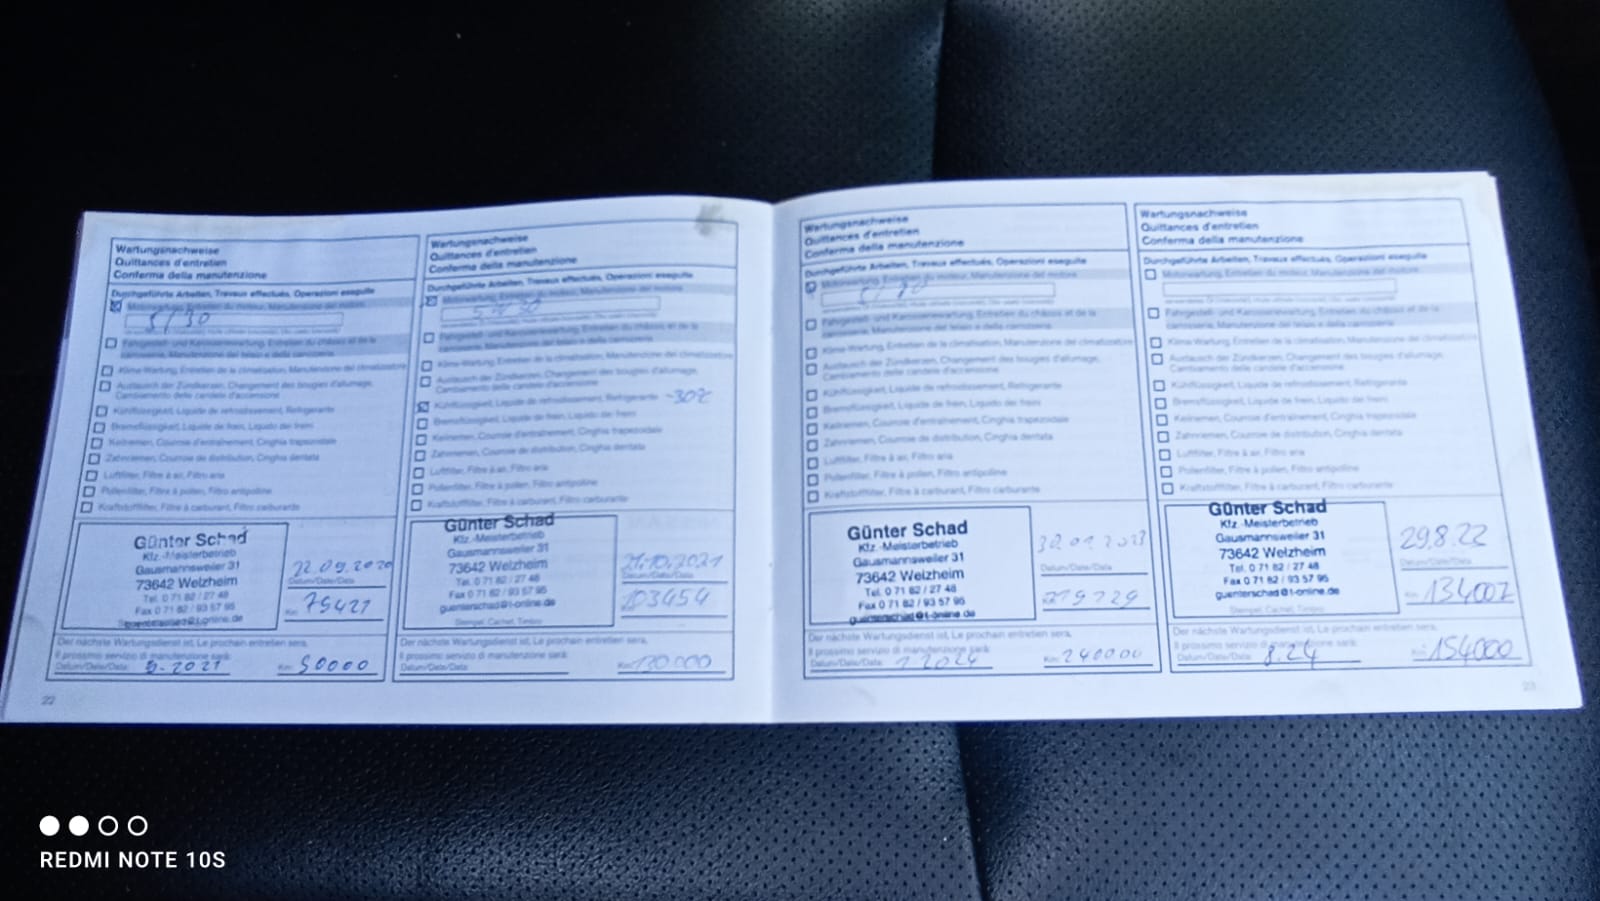 Wartungsnachweise
Quittances d'entretien
Conferma della manutenzione
Durchgeführte Arbeiten, Travaux effectués, Operazioni eseguite
Motorwartung, Entretien du moteur, Manutenzione del motore
Fahrgestell- und Karosseriewartung, Entretien du châssis et de la
carrosserie, Manutenzione del telaio e della carrozzeria
Klima-Wartung, Entretien de la climatisation, Manutenzione del climatizzatore
Austausch der Zündkerzen, Changement des bougies d'allumage,
Cambiamento delle candele d'accensione
Kühlflüssigkeit, Liquide de refroidissement, Refrigerante
Bremsflüssigkeit, Liquide de frein, Liquido dei freni
Keilriemen, Courroie d'entraînement, Cinghia trapezoidale
Zahnriemen, Courroie de distribution, Cinghia dentata
Luftfilter, Filtre à air, Filtro aria
Pollenfilter, Filtre à pollen, Filtro antipolline
Kraftstofffilter, Filtre à carburant, Filtro carburante
Günter Schad
Kfz.-Meisterbetrieb
Gausmannsweiler 31
73642 Welzheim
Tel. 0 71 82 / 27 48
Fax 0 71 82 / 93 57 95
guenterschad@t-online.de
22.09.2020
Datum/Date/Data
Km: 75421
Der nächste Wartungsdienst ist, Le prochain entretien sera,
Il prossimo servizio di manutenzione sarà:
Datum/Date/Data: 9.2021 Km: 90000
22
Wartungsnachweise
Quittances d'entretien
Conferma della manutenzione
Durchgeführte Arbeiten, Travaux effectués, Operazioni eseguite
Motorwartung, Entretien du moteur, Manutenzione del motore
Fahrgestell- und Karosseriewartung, Entretien du châssis et de la
carrosserie, Manutenzione del telaio e della carrozzeria
Klima-Wartung, Entretien de la climatisation, Manutenzione del climatizzatore
Austausch der Zündkerzen, Changement des bougies d'allumage,
Cambiamento delle candele d'accensione
Kühlflüssigkeit, Liquide de refroidissement, Refrigerante -30°C
Bremsflüssigkeit, Liquide de frein, Liquido dei freni
Keilriemen, Courroie d'entraînement, Cinghia trapezoidale
Zahnriemen, Courroie de distribution, Cinghia dentata
Luftfilter, Filtre à air, Filtro aria
Pollenfilter, Filtre à pollen, Filtro antipolline
Kraftstofffilter, Filtre à carburant, Filtro carburante
Günter Schad
Kfz.-Meisterbetrieb
Gausmannsweiler 31
73642 Welzheim
Tel. 0 71 82 / 27 48
Fax 0 71 82 / 93 57 95
guenterschad@t-online.de
Stempel, Cachet, Timbro
10.2021
Datum/Date/Data
103454
Der nächste Wartungsdienst ist, Le prochain entretien sera,
Il prossimo servizio di manutenzione sarà:
Datum/Date/Data: Km:
Wartungsnachweise
Quittances d'entretien
Conferma della manutenzione
Durchgeführte Arbeiten, Travaux effectués, Operazioni eseguite
Motorwartung, Entretien du moteur, Manutenzione del motore
Fahrgestell- und Karosseriewartung, Entretien du châssis et de la
carrosserie, Manutenzione del telaio e della carrozzeria
Klima-Wartung, Entretien de la climatisation, Manutenzione del climatizzatore
Austausch der Zündkerzen, Changement des bougies d'allumage,
Cambiamento delle candele d'accensione
Kühlflüssigkeit, Liquide de refroidissement, Refrigerante
Bremsflüssigkeit, Liquide de frein, Liquido dei freni
Keilriemen, Courroie d'entraînement, Cinghia trapezoidale
Zahnriemen, Courroie de distribution, Cinghia dentata
Luftfilter, Filtre à air, Filtro aria
Pollenfilter, Filtre à pollen, Filtro antipolline
Kraftstofffilter, Filtre à carburant, Filtro carburante
Günter Schad
Kfz.-Meisterbetrieb
Gausmannsweiler 31
73642 Welzheim
Tel. 0 71 82 / 27 48
Fax 0 71 82 / 93 57 95
guenterschad@t-online.de
Datum/Date/Data
Der nächste Wartungsdienst ist, Le prochain entretien sera,
Il prossimo servizio di manutenzione sarà:
Datum/Date/Data: 1.2024 Km:
Wartungsnachweise
Quittances d'entretien
Conferma della manutenzione
Durchgeführte Arbeiten, Travaux effectués, Operazioni eseguite
Motorwartung, Entretien du moteur, Manutenzione del motore
Fahrgestell- und Karosseriewartung, Entretien du châssis et de la
carrosserie, Manutenzione del telaio e della carrozzeria
Klima-Wartung, Entretien de la climatisation, Manutenzione del climatizzatore
Austausch der Zündkerzen, Changement des bougies d'allumage,
Cambiamento delle candele d'accensione
Kühlflüssigkeit, Liquide de refroidissement, Refrigerante
Bremsflüssigkeit, Liquide de frein, Liquido dei freni
Keilriemen, Courroie d'entraînement, Cinghia trapezoidale
Zahnriemen, Courroie de distribution, Cinghia dentata
Luftfilter, Filtre à air, Filtro aria
Pollenfilter, Filtre à pollen, Filtro antipolline
Kraftstofffilter, Filtre à carburant, Filtro carburante
Günter Schad
Kfz.-Meisterbetrieb
Gausmannsweiler 31
73642 Welzheim
Tel. 0 71 82 / 27 48
Fax 0 71 82 / 93 57 95
guenterschad@t-online.de
Stempel, Cachet, Timbro
Datum/Date/Data
Km: 134007
Der nächste Wartungsdienst ist, Le prochain entretien sera,
Il prossimo servizio di manutenzione sarà:
Datum/Date/Data: 8.24 Km: 154000
23
REDMI NOTE 10S